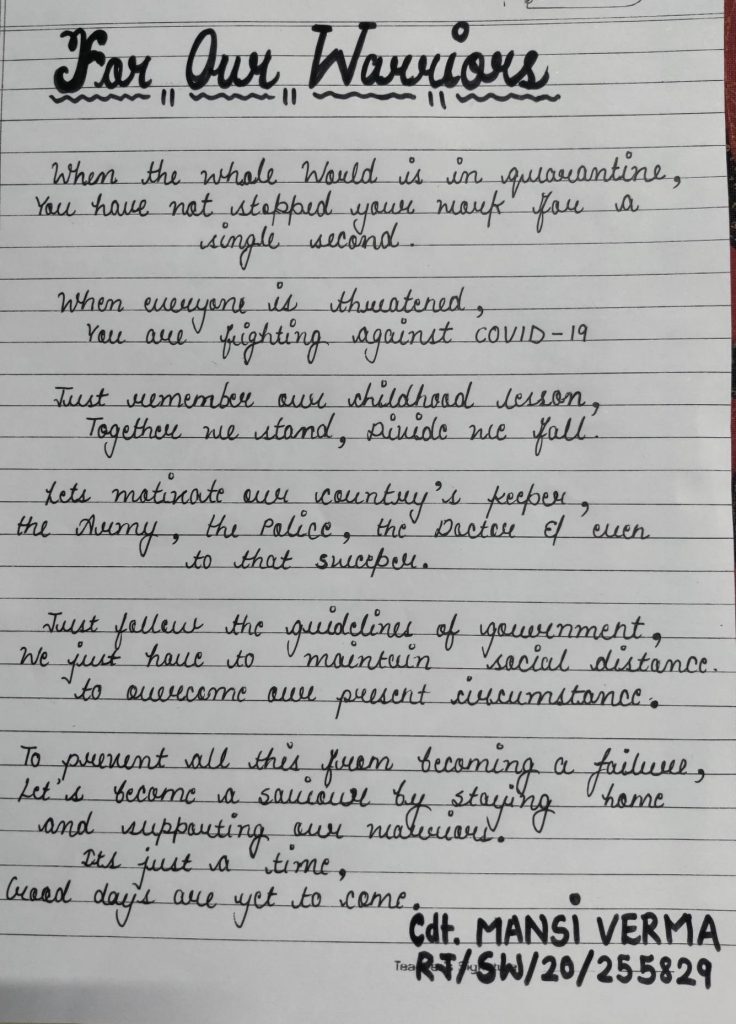 For Our Warriors
When the whole World is in quarantine,
You have not stopped your work for a
single second.
When everyone is threatened,
You are fighting against COVID-19
Just remember our childhood lesson,
Together we stand, Divide we fall.
Lets motivate our country's keeper,
the Army, the Police, the Doctor & even
to that sweeper.
Just follow the guidelines of government,
We just have to maintain social distance.
to overcome our present circumstance.
To prevent all this from becoming a failure,
Let's become a saviour by staying home
and supporting our warriors.
Its just a time,
Good days are yet to come.
Cdt. MANSI VERMA
RJ/SW/20/255829